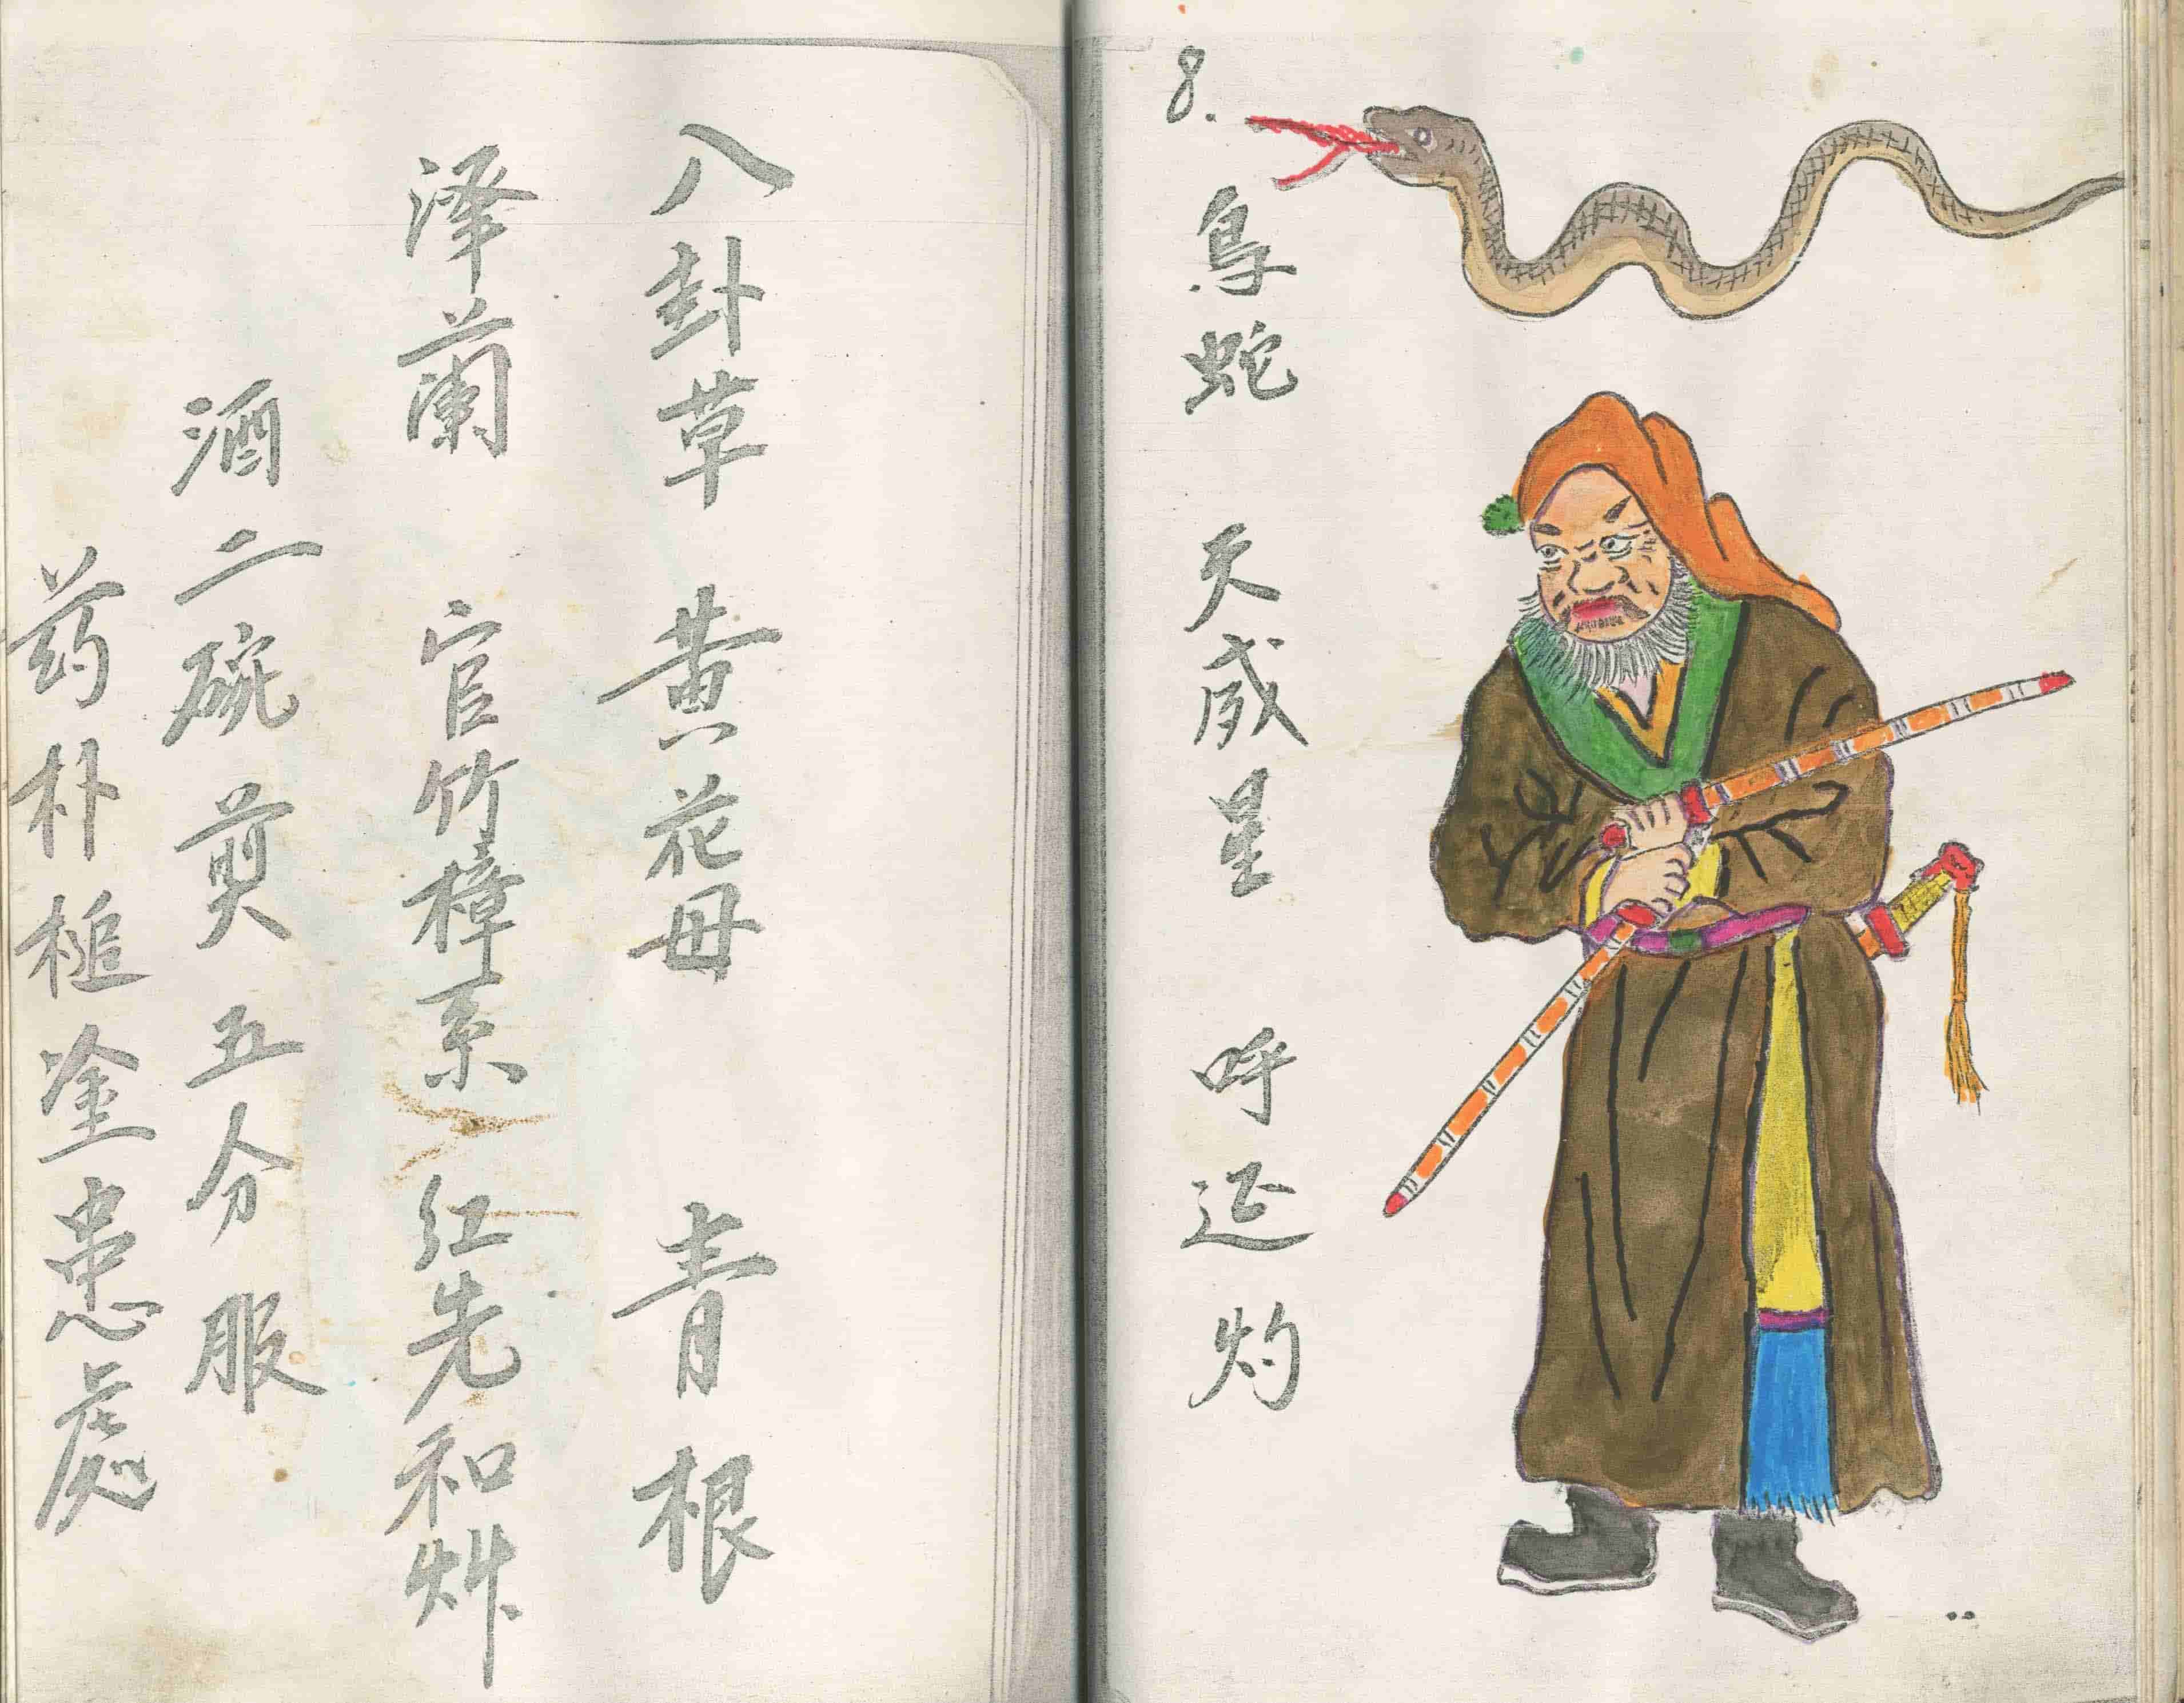 8.
烏蛇 天威星 呼延灼
八卦草 黄花母 青根
泽蘭 官竹樟系 红先和艸
酒二碗剪五分服
药朴槌塗患處